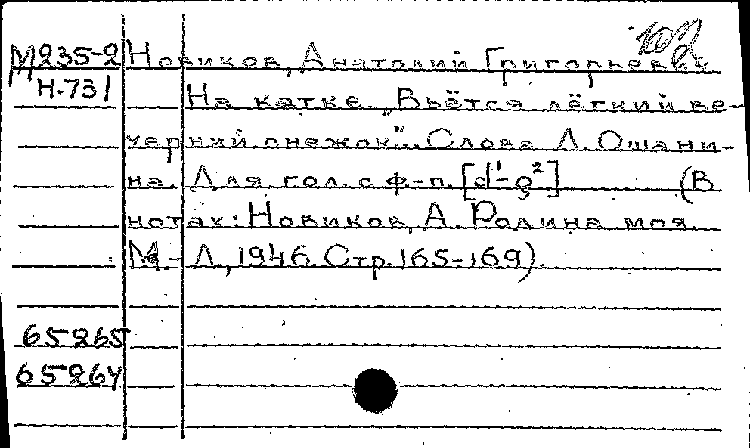 М235-2 Новиков, Анатолий Григорьевич
Н-731 На катке „Вьётся лёгкий ве-
черний снежок“.. Слова Л. Ошани-
на. Для гол. с ф-п. [d¹-g²] (В
нотах: Новиков, А. Родина моя.
М.-Л., 1946. Стр. 165-169).
65265
65264